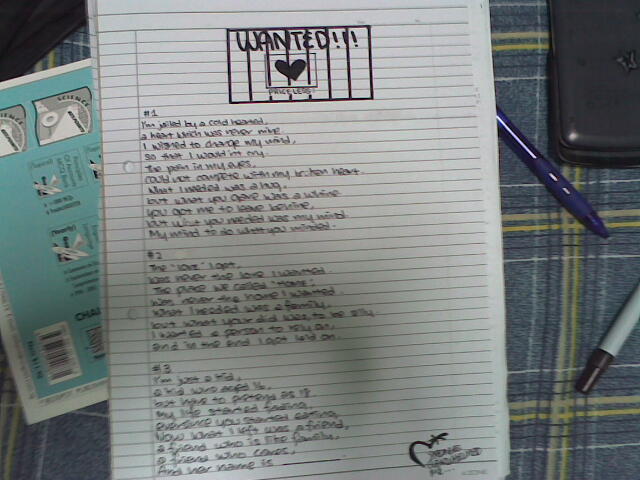 WANTED!!!
PRICELESS!
#1
I'm jailed by a cold hearted,
a heart which was never mine.
I wished to change my mind,
so that I would'nt cry.
the pain in my eyes,
could not compete with my broken heart.
What I needed was a hug,
but what you gave was a whine
you got me to leave
but what you needed was my mind.
My mind to do what you minded.
#2
The "love" I got.
was never the love I wanted
The place we called "Home",
was never the home I wanted
What I needed was a family,
but what your did was to be silly.
I wanted a person to rely on,
and in the end I got lied on.
#3
I'm just a kid,
a kid who aged 16,
but have to pretend as 18
My life started fading,
eversince you started dating,
Now what I left was a friend,
a friend who is like family,
a friend who cares,
And her name is
SCIENCE
CHA